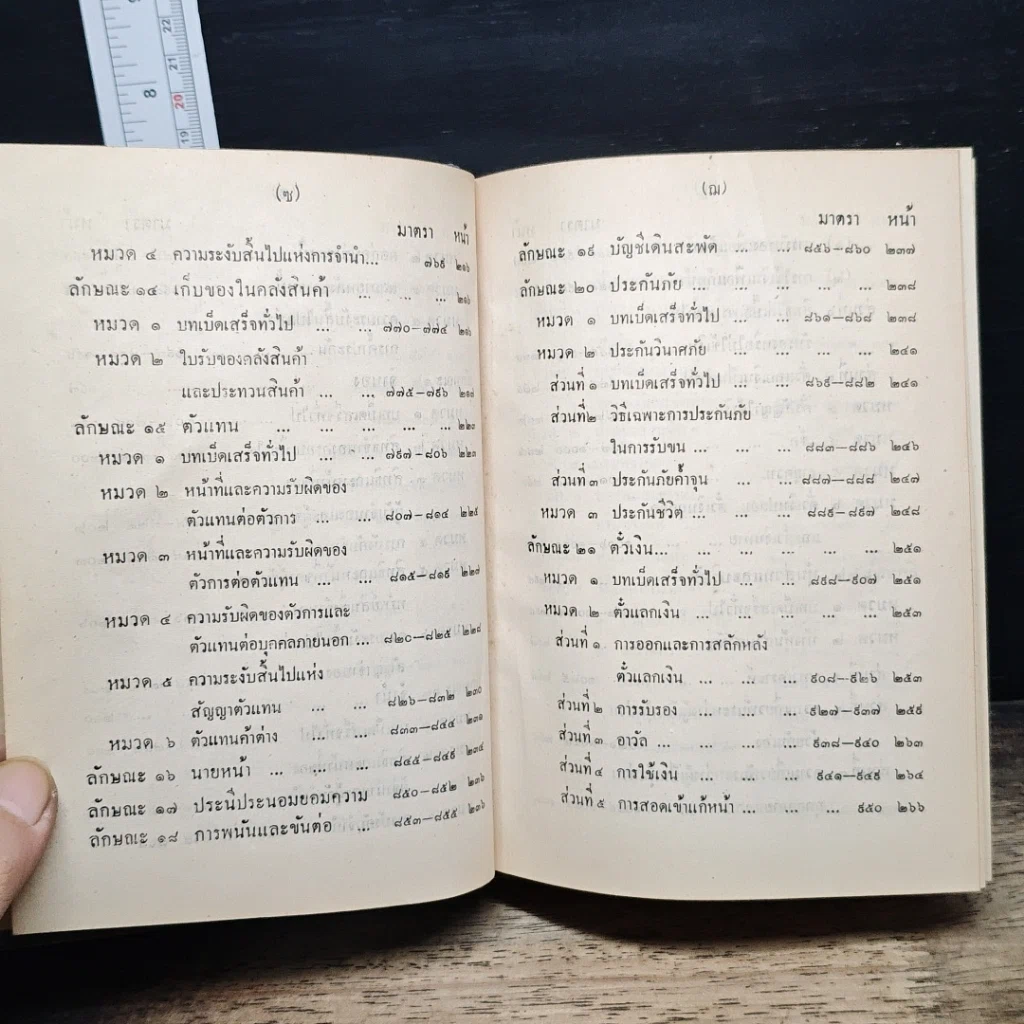 (ซ)
มาตรา หน้า
หมวด ๔ ความระงับสิ้นไปแห่งการจำนำ... ๗๖๙ ๒๑๖
ลักษณะ ๑๔ เก็บของในคลังสินค้า ... ... ... ๒๑๖
หมวด ๑ บทเบ็ดเสร็จทั่วไป ... ... ๗๗๐—๗๗๔ ๒๑๖
หมวด ๒ ใบรับของคลังสินค้า
และประทวนสินค้า ... ... ๗๗๕—๗๙๖ ๒๑๘
ลักษณะ ๑๕ ตัวแทน ... ... ... ... ๒๒๓
หมวด ๑ บทเบ็ดเสร็จทั่วไป ... ... ๗๙๗—๘๐๖ ๒๒๓
หมวด ๒ หน้าที่และความรับผิดของ
ตัวแทนต่อตัวการ ... ... ๘๐๗—๘๑๔ ๒๒๕
หมวด ๓ หน้าที่และความรับผิดของ
ตัวการต่อตัวแทน ... ... ๘๑๕—๘๑๙ ๒๒๗
หมวด ๔ ความรับผิดของตัวการและ
ตัวแทนต่อบุคคลภายนอก ... ๘๒๐—๘๒๕ ๒๒๘
หมวด ๕ ความระงับสิ้นไปแห่ง
สัญญาตัวแทน ... ... ๘๒๖—๘๓๒ ๒๓๐
หมวด ๖ ตัวแทนค้าต่าง ... ... ๘๓๓—๘๔๔ ๒๓๑
ลักษณะ ๑๖ นายหน้า ... ... ... ๘๔๕—๘๔๙ ๒๓๔
ลักษณะ ๑๗ ประนีประนอมยอมความ ๘๕๐—๘๕๒ ๒๓๖
ลักษณะ ๑๘ การพนันและขันต่อ ... ๘๕๓—๘๕๕ ๒๓๖
(ฌ)
มาตรา หน้า
ลักษณะ ๑๙ บัญชีเดินสะพัด ... ... ๘๕๖—๘๖๐ ๒๓๗
ลักษณะ ๒๐ ประกันภัย ... ... ... ... ๒๓๘
หมวด ๑ บทเบ็ดเสร็จทั่วไป ... ... ๘๖๑—๘๖๘ ๒๓๘
หมวด ๒ ประกันวินาศภัย ... ... ... ... ๒๔๑
ส่วนที่ ๑ บทเบ็ดเสร็จทั่วไป ... ... ๘๖๙—๘๘๒ ๒๔๑
ส่วนที่๒ วิธีเฉพาะการประกันภัย
ในการรับขน ... ... ... ๘๘๓—๘๘๖ ๒๔๖
ส่วนที่ ๓ ประกันภัยค้ำจุน ... ... ๘๘๗—๘๘๘ ๒๔๗
หมวด ๓ ประกันชีวิต ... ... ... ๘๘๙—๘๙๗ ๒๔๘
ลักษณะ ๒๑ ตั๋วเงิน... ... ... ... ... ๒๕๑
หมวด ๑ บทเบ็ดเสร็จทั่วไป ... ... ๘๙๘—๙๐๗ ๒๕๑
หมวด ๒ ตั๋วแลกเงิน ... ... ... ... ๒๕๓
ส่วนที่ ๑ การออกและการสลักหลัง
ตั๋วแลกเงิน ... ... ... ๙๐๘—๙๒๖ ๒๕๓
ส่วนที่ ๒ การรับรอง ... ... ... ๙๒๗—๙๓๗ ๒๕๙
ส่วนที่ ๓ อาวัล ... ... ... ... ๙๓๘—๙๔๐ ๒๖๓
ส่วนที่ ๔ การใช้เงิน ... ... ... ๙๔๑—๙๔๙ ๒๖๔
ส่วนที่ ๕ การสอดเข้าแก้หน้า ... ... ... ๙๕๐ ๒๖๖
22
21
8
20
19